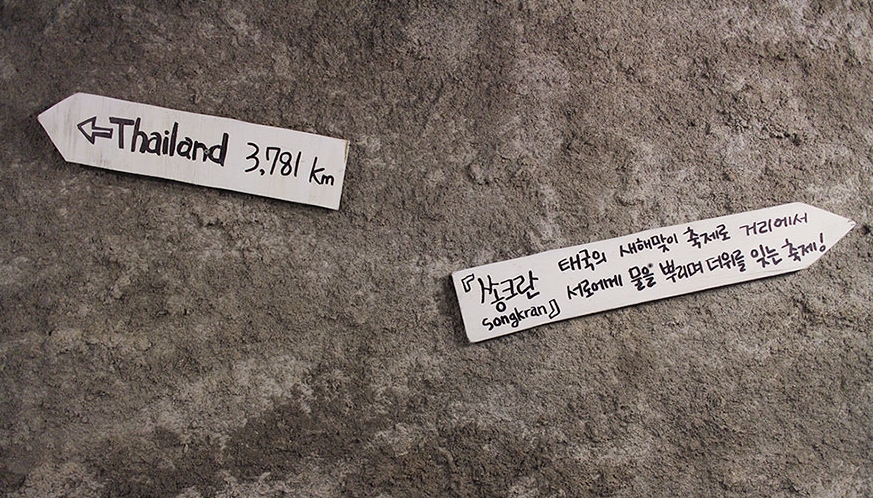 ⇦Thailand 3,781 km
『쏭크란 태국의 새해맞이 축제로 거리에서
songkran』 서로에게 물을 뿌리며 더위를 잊는 축제!